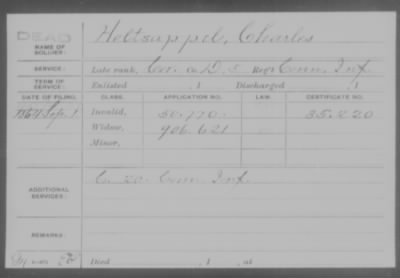 DEAD
NAME OF SOLDIER: Holtsappel, Charles
SERVICE: Late rank, Cor. Co. D, 5 Reg't Conn. Inf.
TERM OF SERVICE: Enlisted , 1 Discharged , 1
DATE OF FILING. CLASS. APPLICATION NO. LAW. CERTIFICATE NO.
1864 Sep. 1 Invalid, 50.770. 35.220
Widow, 906.621
Minor,
ADDITIONAL SERVICES: C. 20. Conn. Inf.
REMARKS:
Died , 1 , at